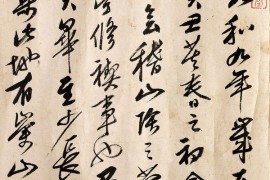 和九年歲在
癸丑暮春之初會
會稽山陰之蘭
修禊事也羣
畢至少長
此地有崇山